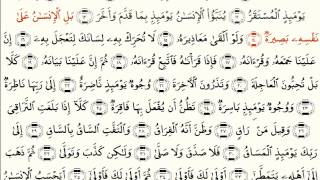 يَوْمَئِذٍ ٱلْمُسْتَقَرُّ ١٢ يُنَبَّؤُا۟ ٱلْإِنسَٰنُ يَوْمَئِذٍۭ بِمَا قَدَّمَ وَأَخَّرَ ١٣ بَلِ ٱلْإِنسَٰنُ عَلَىٰ
نَفْسِهِۦ بَصِيرَةٌ ١٤ وَلَوْ أَلْقَىٰ مَعَاذِيرَهُۥ ١٥ لَا تُحَرِّكْ بِهِۦ لِسَانَكَ لِتَعْجَلَ بِهِۦٓ ١٦ إِنَّ
عَلَيْنَا جَمْعَهُۥ وَقُرْءَانَهُۥ ١٧ فَإِذَا قَرَأْنَٰهُ فَٱتَّبِعْ قُرْءَانَهُۥ ١٨ ثُمَّ إِنَّ عَلَيْنَا بَيَانَهُۥ ١٩ كَلَّا
بَلْ تُحِبُّونَ ٱلْعَاجِلَةَ ٢٠ وَتَذَرُونَ ٱلْءَاخِرَةَ ٢١ وُجُوهٌ يَوْمَئِذٍ نَّاضِرَةٌ ٢٢ إِلَىٰ رَبِّهَا نَاظِرَةٌ
٢٣ وَوُجُوهٌ يَوْمَئِذٍۭ بَاسِرَةٌ ٢٤ تَظُنُّ أَن يُفْعَلَ بِهَا فَاقِرَةٌ ٢٥ كَلَّآ إِذَا بَلَغَتِ ٱلتَّرَاقِىَ
٢٦ وَقِيلَ مَنْ رَاقٍ ٢٧ وَظَنَّ أَنَّهُ ٱلْفِرَاقُ ٢٨ وَٱلْتَفَّتِ ٱلسَّاقُ بِٱلسَّاقِ ٢٩ إِلَىٰ
رَبِّكَ يَوْمَئِذٍ ٱلْمَسَاقُ ٣٠ فَلَا صَدَّقَ وَلَا صَلَّىٰ ٣١ وَلَٰكِن كَذَّبَ وَتَوَلَّىٰ ٣٢ ثُمَّ ذَهَبَ
إِلَىٰٓ أَهْلِهِۦ يَتَمَطَّىٰٓ ٣٣ أَوْلَىٰ لَكَ فَأَوْلَىٰ ٣٤ ثُمَّ أَوْلَىٰ لَكَ فَأَوْلَىٰٓ ٣٥ أَيَحْسَبُ ٱلْإِنسَٰنُ